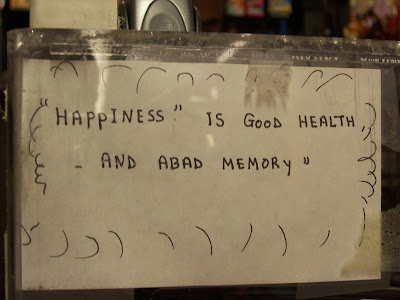 "HAPPINESS" IS GOOD HEALTH
- AND ABAD MEMORY"